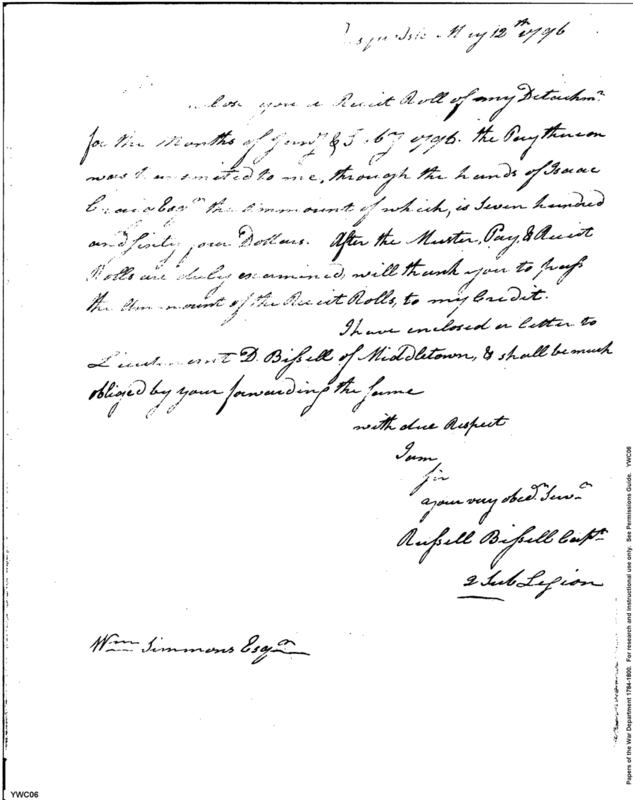 May 12th 1796
you a Reciet Roll of my Detachmt
for the Months of Jany & Feby 1796. the Pay thereon
was transmited to me, through the hands of Isaac
Craig Esqr the Ammount of which, is Seven hundred
and sixty four Dollars. After the Muster, Pay & Reciet
Rolls are duly examined, will thank you to pass
the Ammount of the Reciet Rolls, to my Credit.
I have enclosed a letter to
Lieutenant D. Bissell of Middletown, & shall be much
obliged by your forwarding the same
with due Respect
I am
Sir
your very obedt Servt
Russell Bissell Capt
2 Sub Legion
Wm Simmons Esqr
Papers of the War Department 1784-1800. For research and instructional use only. See Permissions Guide. YWC06
YWC06